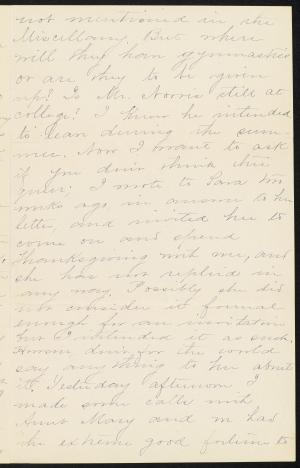 not mentioned in the
Miscellany. But where
will they have gymnastics
or are they to be given
up? Is Mr. Norris still at
college? I knew he intended
to lean during the sum-
mer. Now I want to ask
if you don't think this
queer: I wrote to Sara two
weeks ago in answer to her
letter and invited her to
come on and spend
Thanksgiving with me, and
she has not replied in
any way. Possibly she did
not consider it formal
enough for an invitation
but I intended it as such.
However don't for the world
say anything to her about
it. Yesterday afternoon I
made some calls with
Aunt Mary and we had
the extreme good fortune to